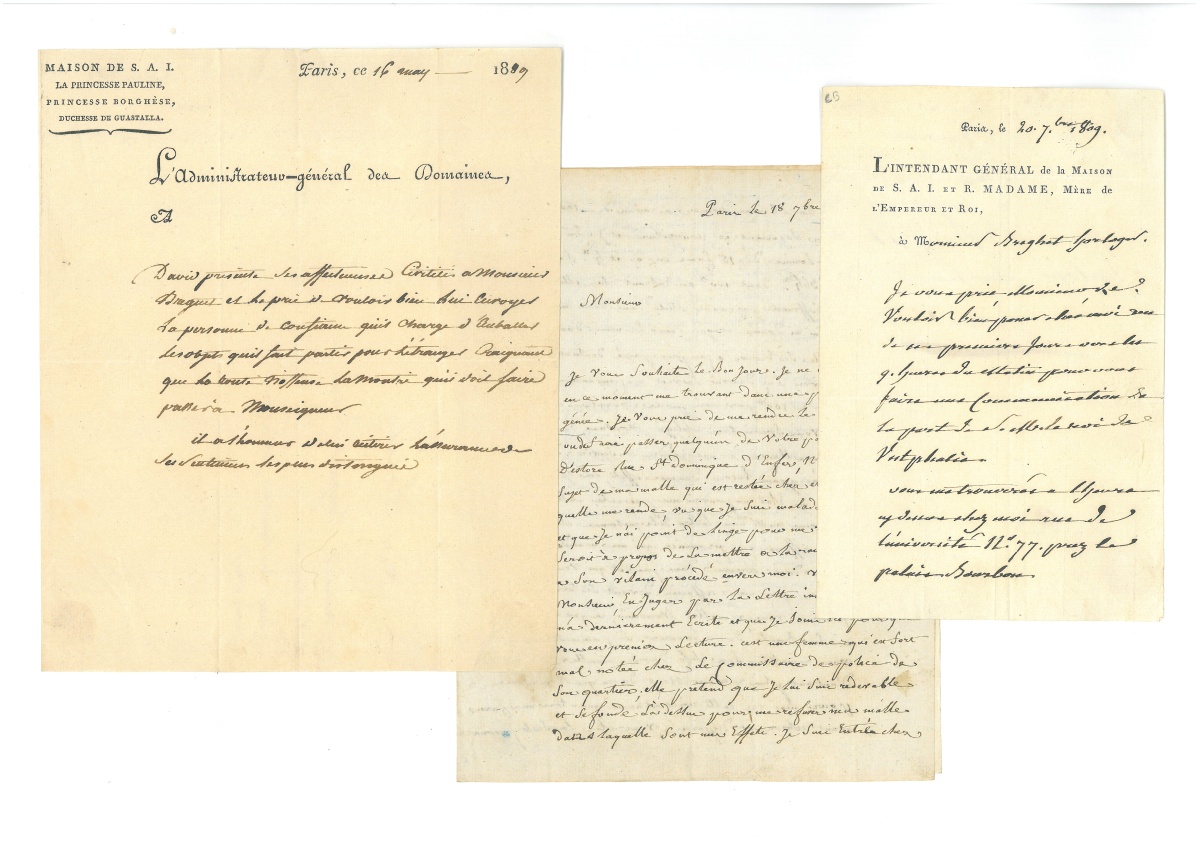 MAISON DE S. A. I.
LA PRINCESSE PAULINE,
PRINCESSE BORGHÈSE,
DUCHESSE DE GUASTALLA.
Paris, ce 16 may 1809
L'Administrateur-général des Domaines,
A
David présente ses affectueuses Civilités a Monsieur
Breguet et le prie de vouloir bien lui Envoyer
la personne de confiance qu'il charge d'Emballer
les objets qu'il fait partir pour l'étranger Craignant
que la route n'offense la montre qu'il doit faire
passer a Monseigneur
il a l'honneur de lui réitérer l'assurance de
ses sentimens les plus distingués
Paris le 18 7bre
Monsieur
Je Vous Souhaite le Bon Jour. Je ne
en ce moment me trouvant dans une
génée. Je Vous prie de me rendre le
faire passer quelqu'un de Votre
D'estore Rue St Dominique d'Enfer, N
Sujet de ma malle qui est restée chez
quelle me rende, vu que Je suis malad
et que Je n'ai point de linge pour me
Seroit à propos de La mettre a la
a Son vilain procédé envers moi. V
Monsieur, En Juger par la Lettre
m'a dernièrement Ecrite et que Je
Vous en prenier Lecture. c'est une femme qui est fort
mal notée chez Le Commissaire de police de
Son quartier, elle prétend que Je lui suis redevable
et se fonde Là dessus pour me refuser ma malle
dans laquelle sont mes Effets. Je suis Entrée chez
Paris, le 20. 7.bre 1809.
L'INTENDANT GÉNÉRAL de la Maison
DE S. A. I. ET R. MADAME, Mère de
L'EMPEREUR ET ROI,
à Monsieur Breghet horloger.
Je vous prie Monsieur de
Vouloir bien passer chés moi un
de ces premiers Jours vers les
9. heures du Matin pour vous
faire une Communication de
la part de S. M. le roi de
Vestphalie.
vous me trouverés a l'heure
cy dessus chez moi rue de
l'université N.º 77. prez le
palais Bourbon